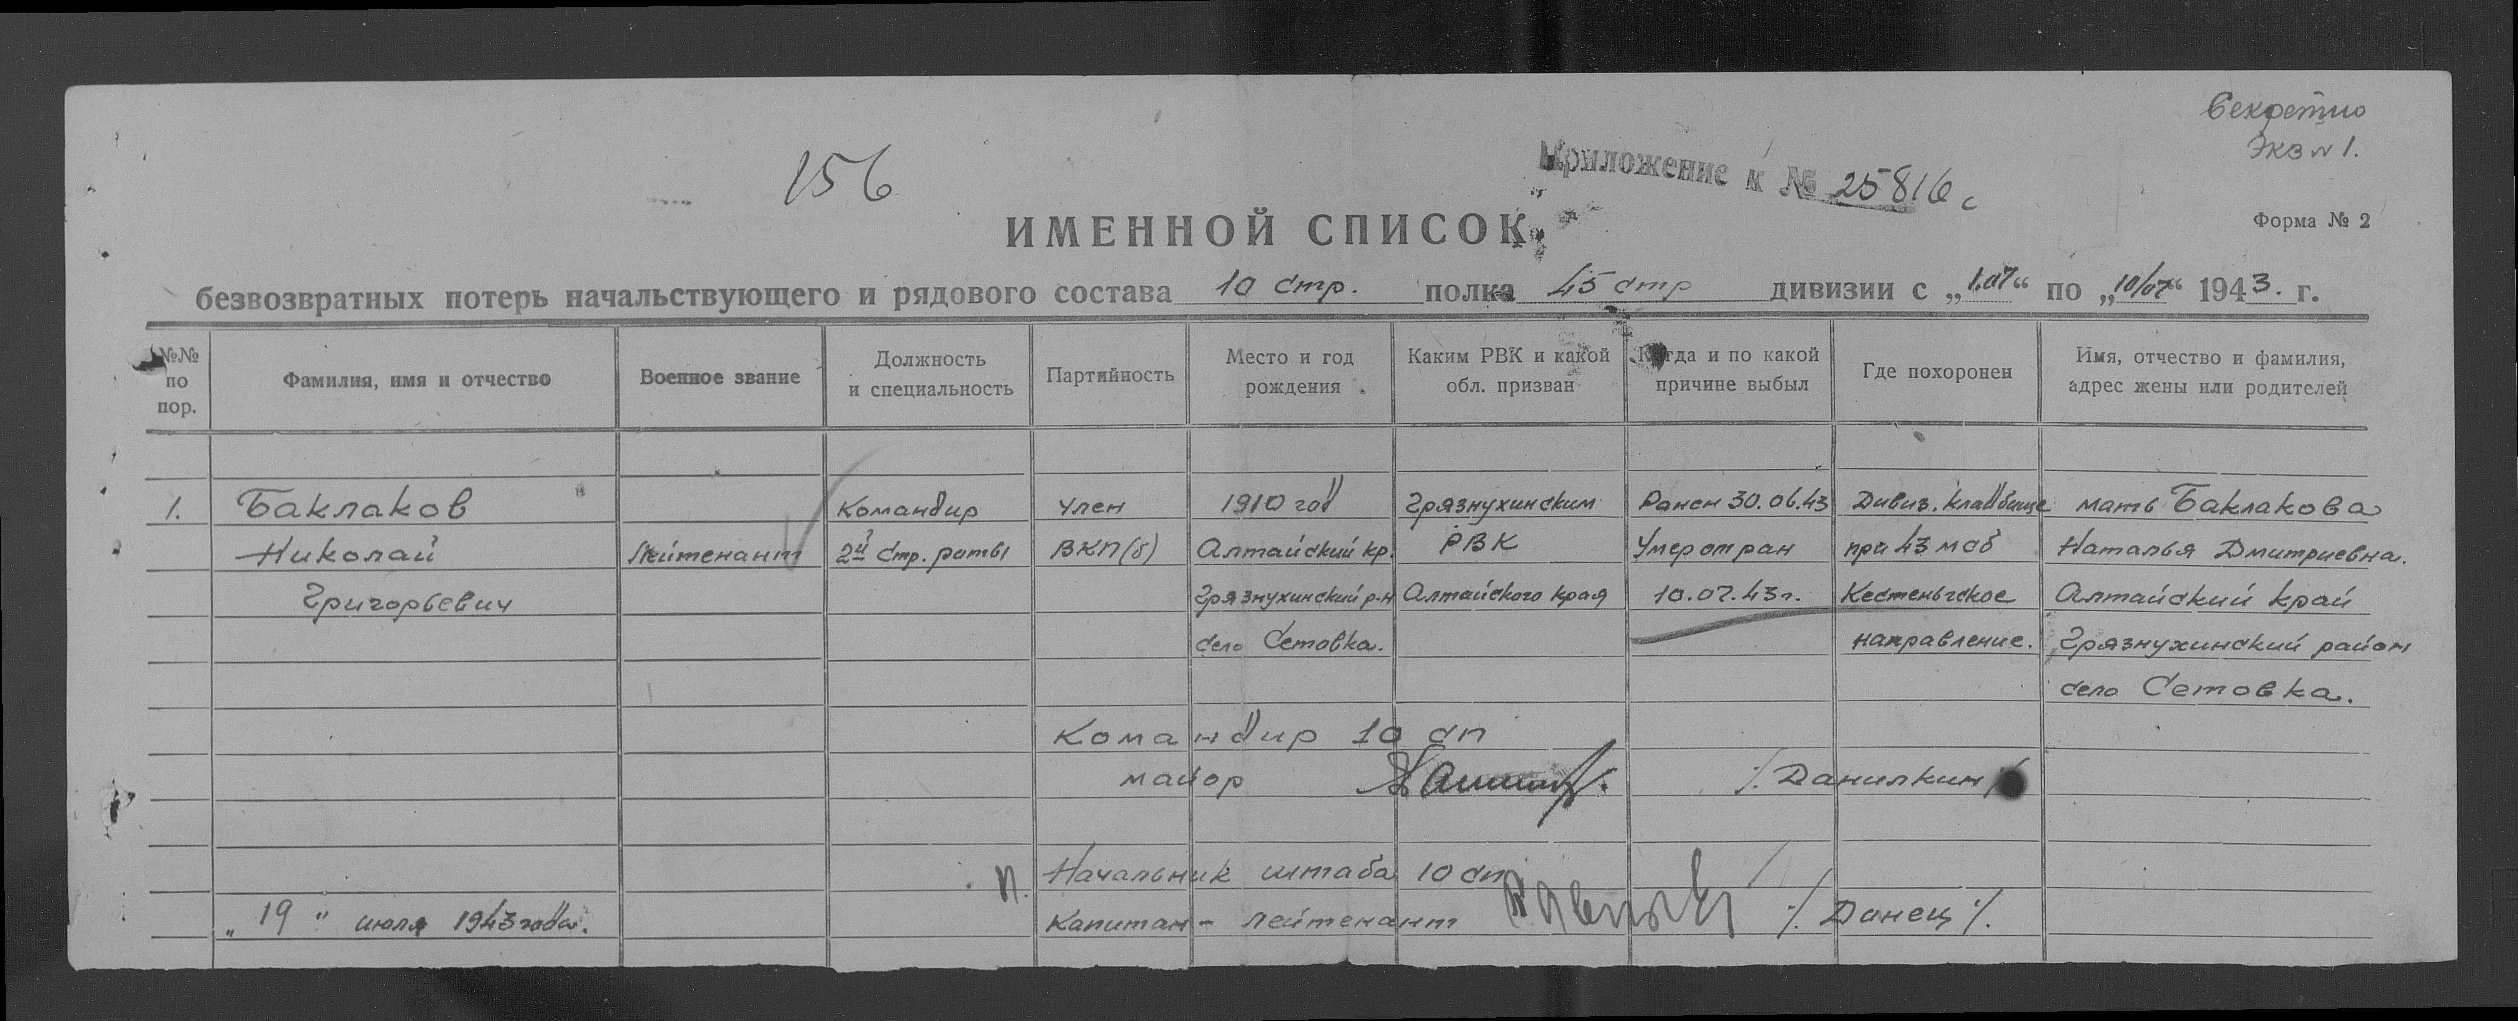 Секретно
Экз № 1.
156
Приложение к № 25816с
Форма № 2
ИМЕННОЙ СПИСОК
безвозвратных потерь начальствующего и рядового состава 10 стр. полка 45 стр дивизии с „1.07“ по „10/07“ 1943. г.
№№ по пор.
Фамилия, имя и отчество
Военное звание
Должность и специальность
Партийность
Место и год рождения
Каким РВК и какой обл. призван
Когда и по какой причине выбыл
Где похоронен
Имя, отчество и фамилия, адрес жены или родителей
1. Баклаков Командир Член 1910 год Грязнухинским Ранен 30.06.43 Дивиз. кладбище мать Баклакова
Николай Лейтенант 2й стр. роты ВКП(б) Алтайский кр. РВК Умер от ран при 43 мсб Наталья Дмитриевна.
Григорьевич Грязнухинский р-н Алтайского края 10.07.43г. Кестеньгское Алтайский край
село Сетовка. направление. Грязнухинский район
село Сетовка.
Командир 10 сп
майор /. Данилкин /
п. Начальник штаба 10 сп
„ 19 " июля 1943 года. Капитан - лейтенант /. Данец /.